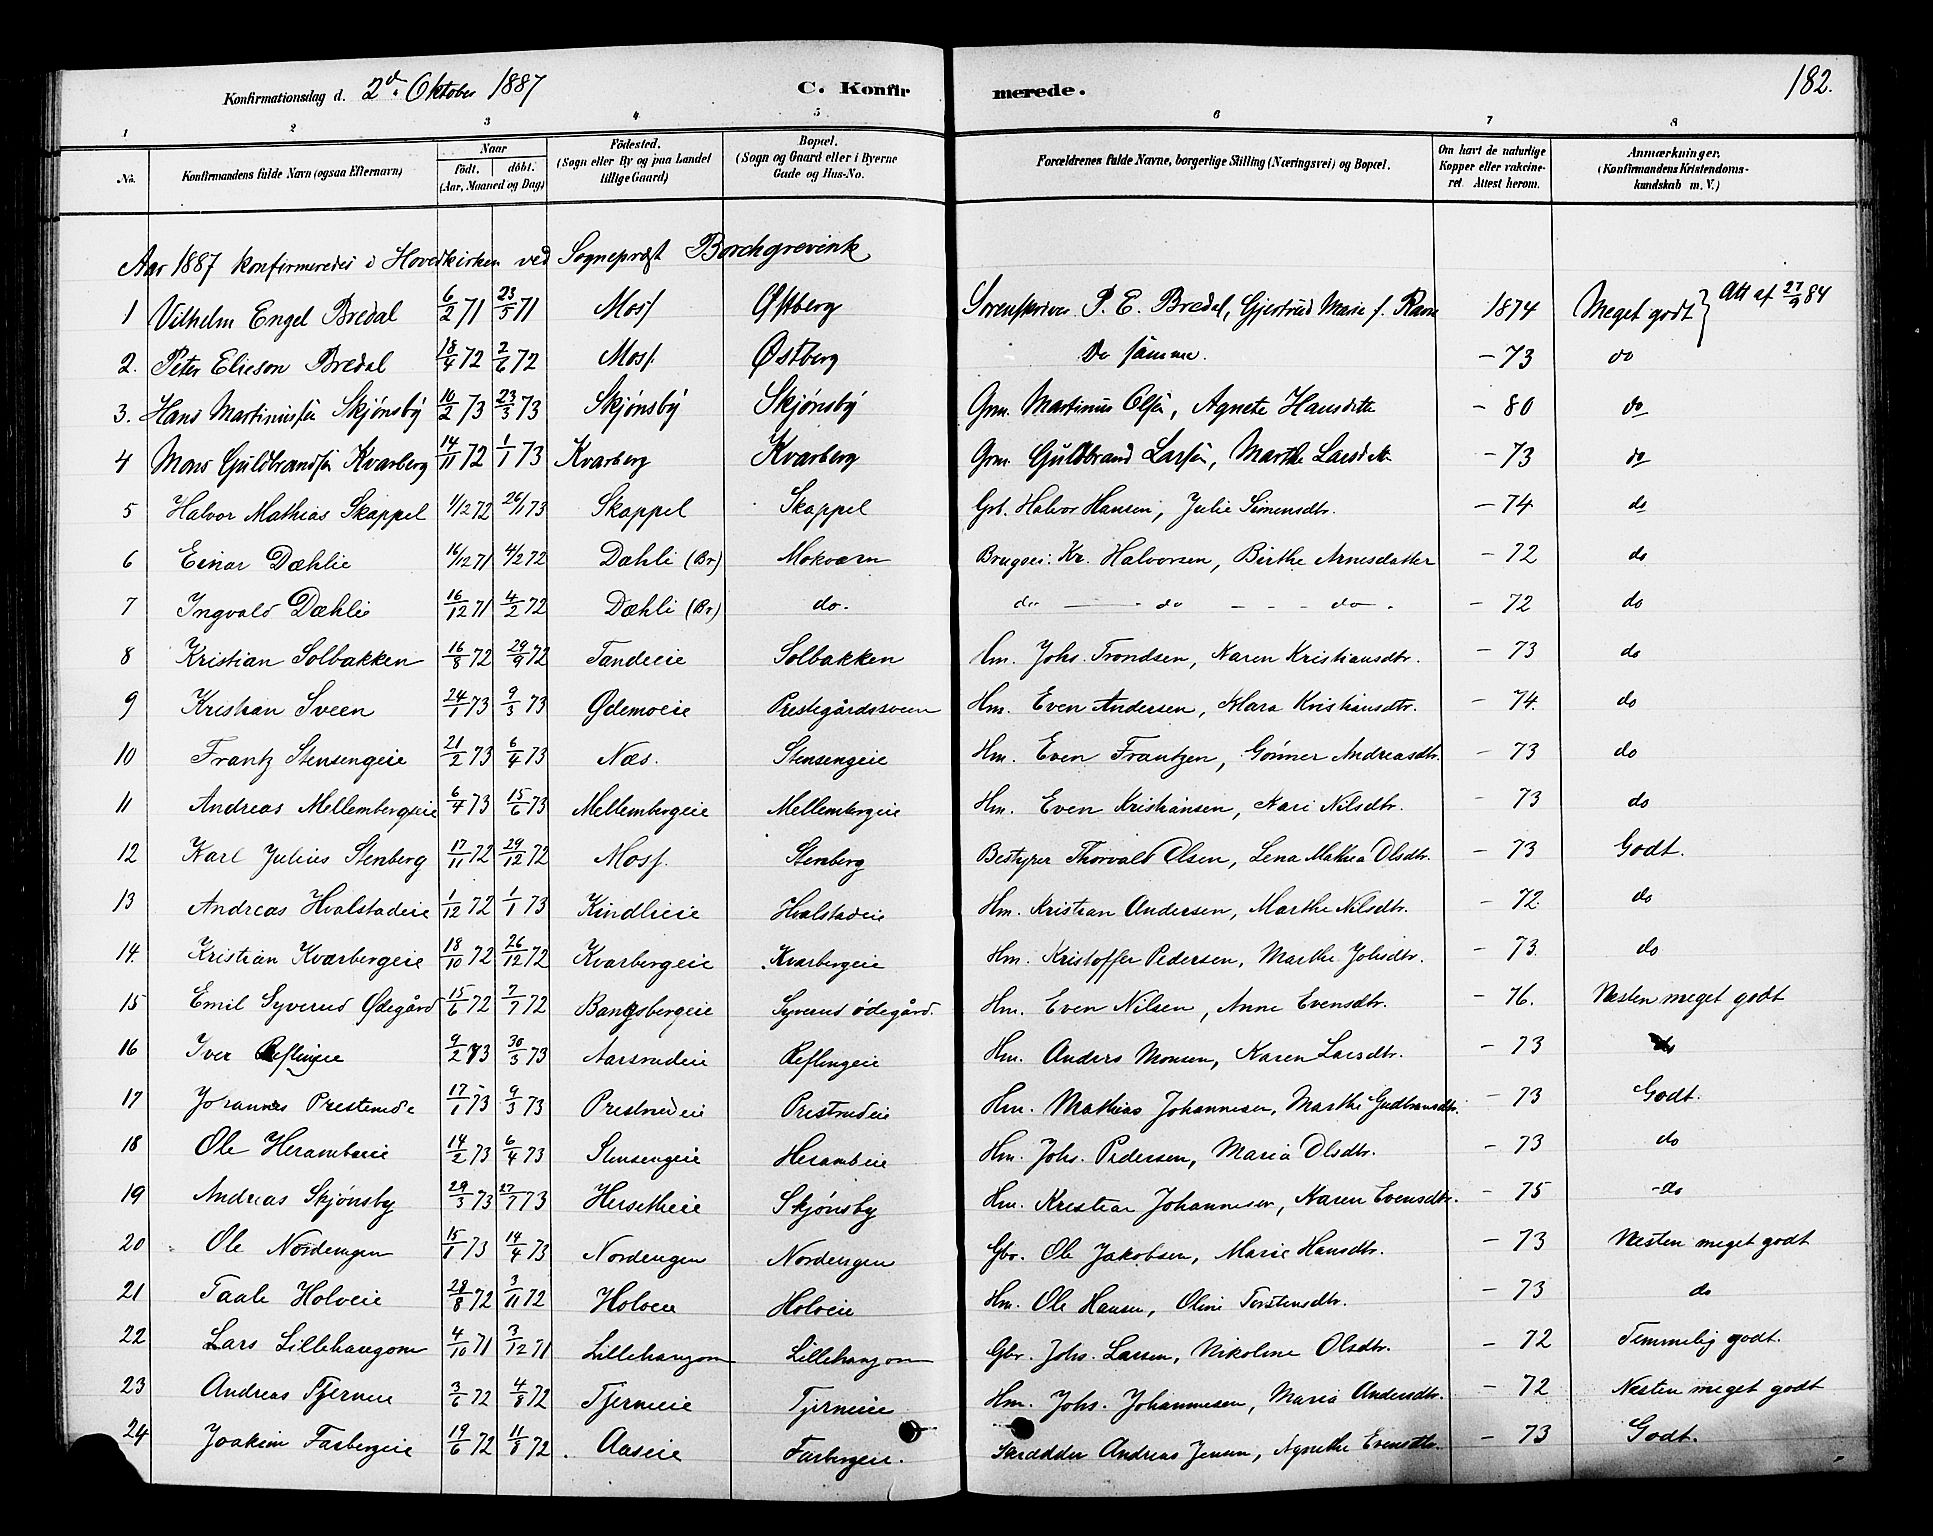 Konfirmationsdag d. 2d. Oktober 1887 C. Konfirmerede. 182.
1 2 3 4 5 6 7 8
No. Konfirmandens fulde Navn (ogsaa Efternavn) Naar födt. döbt. (Aar, Maaned og Dag) Födested. (Sogn eller By og paa Landet tillige Gaard) Bopæl. (Sogn og Gaard eller i Byerne Gade og Hus-No. Forældrenes fulde Navne, borgerlige Stilling (Næringsvei) og Bopæl. Om havt de naturlige Kopper eller vakcineret. Attest herom. Anmærkninger. (Konfirmandens Kristendomskundskab m. V.)
Aar 1887 konfirmeredes i Hovedkirken ved Sognepræst Borchgrevink
1 Vilhelm Engel Bredal 6/2 71 23/5 71 Moss Østberg Sorenskriver P. E. Bredal, Gjertrud Marie f. Ravn 1874 Meget godt } Att af 27/9 84
2. Peter Elieson Bredal 18/4 72 2/6 72 Moss Østberg De samme. - 73 do
3. Hans Martinussen Skjønsby 10/2 73 23/3 73 Skjønsby Skjønsby Grm. Martinus Olsen, Agnete Hansdtr - 80 do
4 Mons Guldbrandsen Kvarberg 14/11 72 1/1 73 Kvarberg Kvarberg Grm. Guldbrand Larsen, Marthe Larsdtr - 73 do
5 Halvor Mathias Skappel 1/12 72 26/1 73 Skappel Skappel Grb. Halvor Hansen, Julie Simensdtr. - 74 do
6 Einar Dæhlie 16/12 71 4/2 72 Dæhli (Br) Mokværn Brugsei: Kr. Halvorsen, Birthe Arnesdatter - 72 do
7 Ingvald Dæhlie 16/12 71 4/2 72 Dæhli (Br) do. do - do - - - do - . - 72 do
8 Kristian Solbakken 16/8 72 29/9 72 Tandeeie Solbakken Johs. Trondsen, Karen Kristiansdtr. - 73 do
9 Kristian Sveen 24/1 73 9/3 73 Ødemoeie Prestegårdssveen Hm. Even Andersen, Klara Kristiansdtr. - 74. do
10 Frantz Stensengeie 21/2 73 6/4 73 Næs. Stensengeie Hm. Even Frantzen, Gønner Andreasdtr. - 73 do
11 Andreas Mellembergeie 6/4 73 15/6 73 Mellembergeie Mellembergeie Hm. Even Kristiansen, Kari Nilsdtr. - 73 do
12 Karl Julius Stenberg 17/11 72 29/12 72 Moss. Stenberg Bestyrer Thorvald Olsen, Lena Mathea Olsdtr. - 73 Godt.
13 Andreas Hvalstadeie 1/12 72 1/1 73 Kindlieie Hvalstadeie Hm. Kristian Andersen, Marthe Nilsdtr. - 72 do
14 Kristian Kvarbergeie 18/10 72 26/12 72 Kvarbergeie Kvarbergeie Hm. Kristoffer Pedersen, Marthe Johsdtr. - 73. do
15 Emil Syverud Ødegård 15/6 72 7/7 72 Bangsbergeie Syverud ødegård. Hm. Even Nilsen, Anne Evensdtr. - 76. Næsten meget godt
16 Iver Reflingeie 9/2 73 30/3 73 Aarsrudeie Reflingeie Hm. Anders Monsen, Karen Larsdtr. - 73 do
17 Johannes 17/1 73 9/3 73 Prestrudeie Prestrudeie Hm. Mathias Johannesen, Marthe Gudbransdtr. - 73 Godt.
18 Ole 14/2 73 6/4 73 Stensengeie Herambeie Hm. Johs. Pedersen, Maria Olsdtr. - 73 do
19 Andreas Skjønsby 29/3 73 27/7 73 Hersetheie Skjønsby Hm. Kristian Johannesen, Karen Evensdtr. - 75 - do
20 Ole Nordengen 15/1 73 14/4 73 Nordengen Nordengen Gbr. Ole Jakobsen, Marie Hansdtr. - 73 Næsten meget godt
21 Taale Holveie 28/8 72 3/11 72 Holveie Holveie Hm. Ole Hansen, Oline Torstensdtr. - 73 do
22 Lars Lillehaugom 4/10 71 3/12 71 Lillehaugom Lillehaugom Gbr. Johs. Larsen, Nikoline Olsdtr. - 72 Temmelig godt.
23 Andreas Tjerneie 3/6 72 4/8 72 Tjerneie Tjerneie Hm. Johs. Johannesen, Maria Andersdtr. - 72 Næsten meget godt
24 Joakim Farbergeie 19/6 72 11/8 72 Aaseie Farbergeie. Skrædder Andreas Jensen, Agnethe Evensdtr. - 73 Godt.